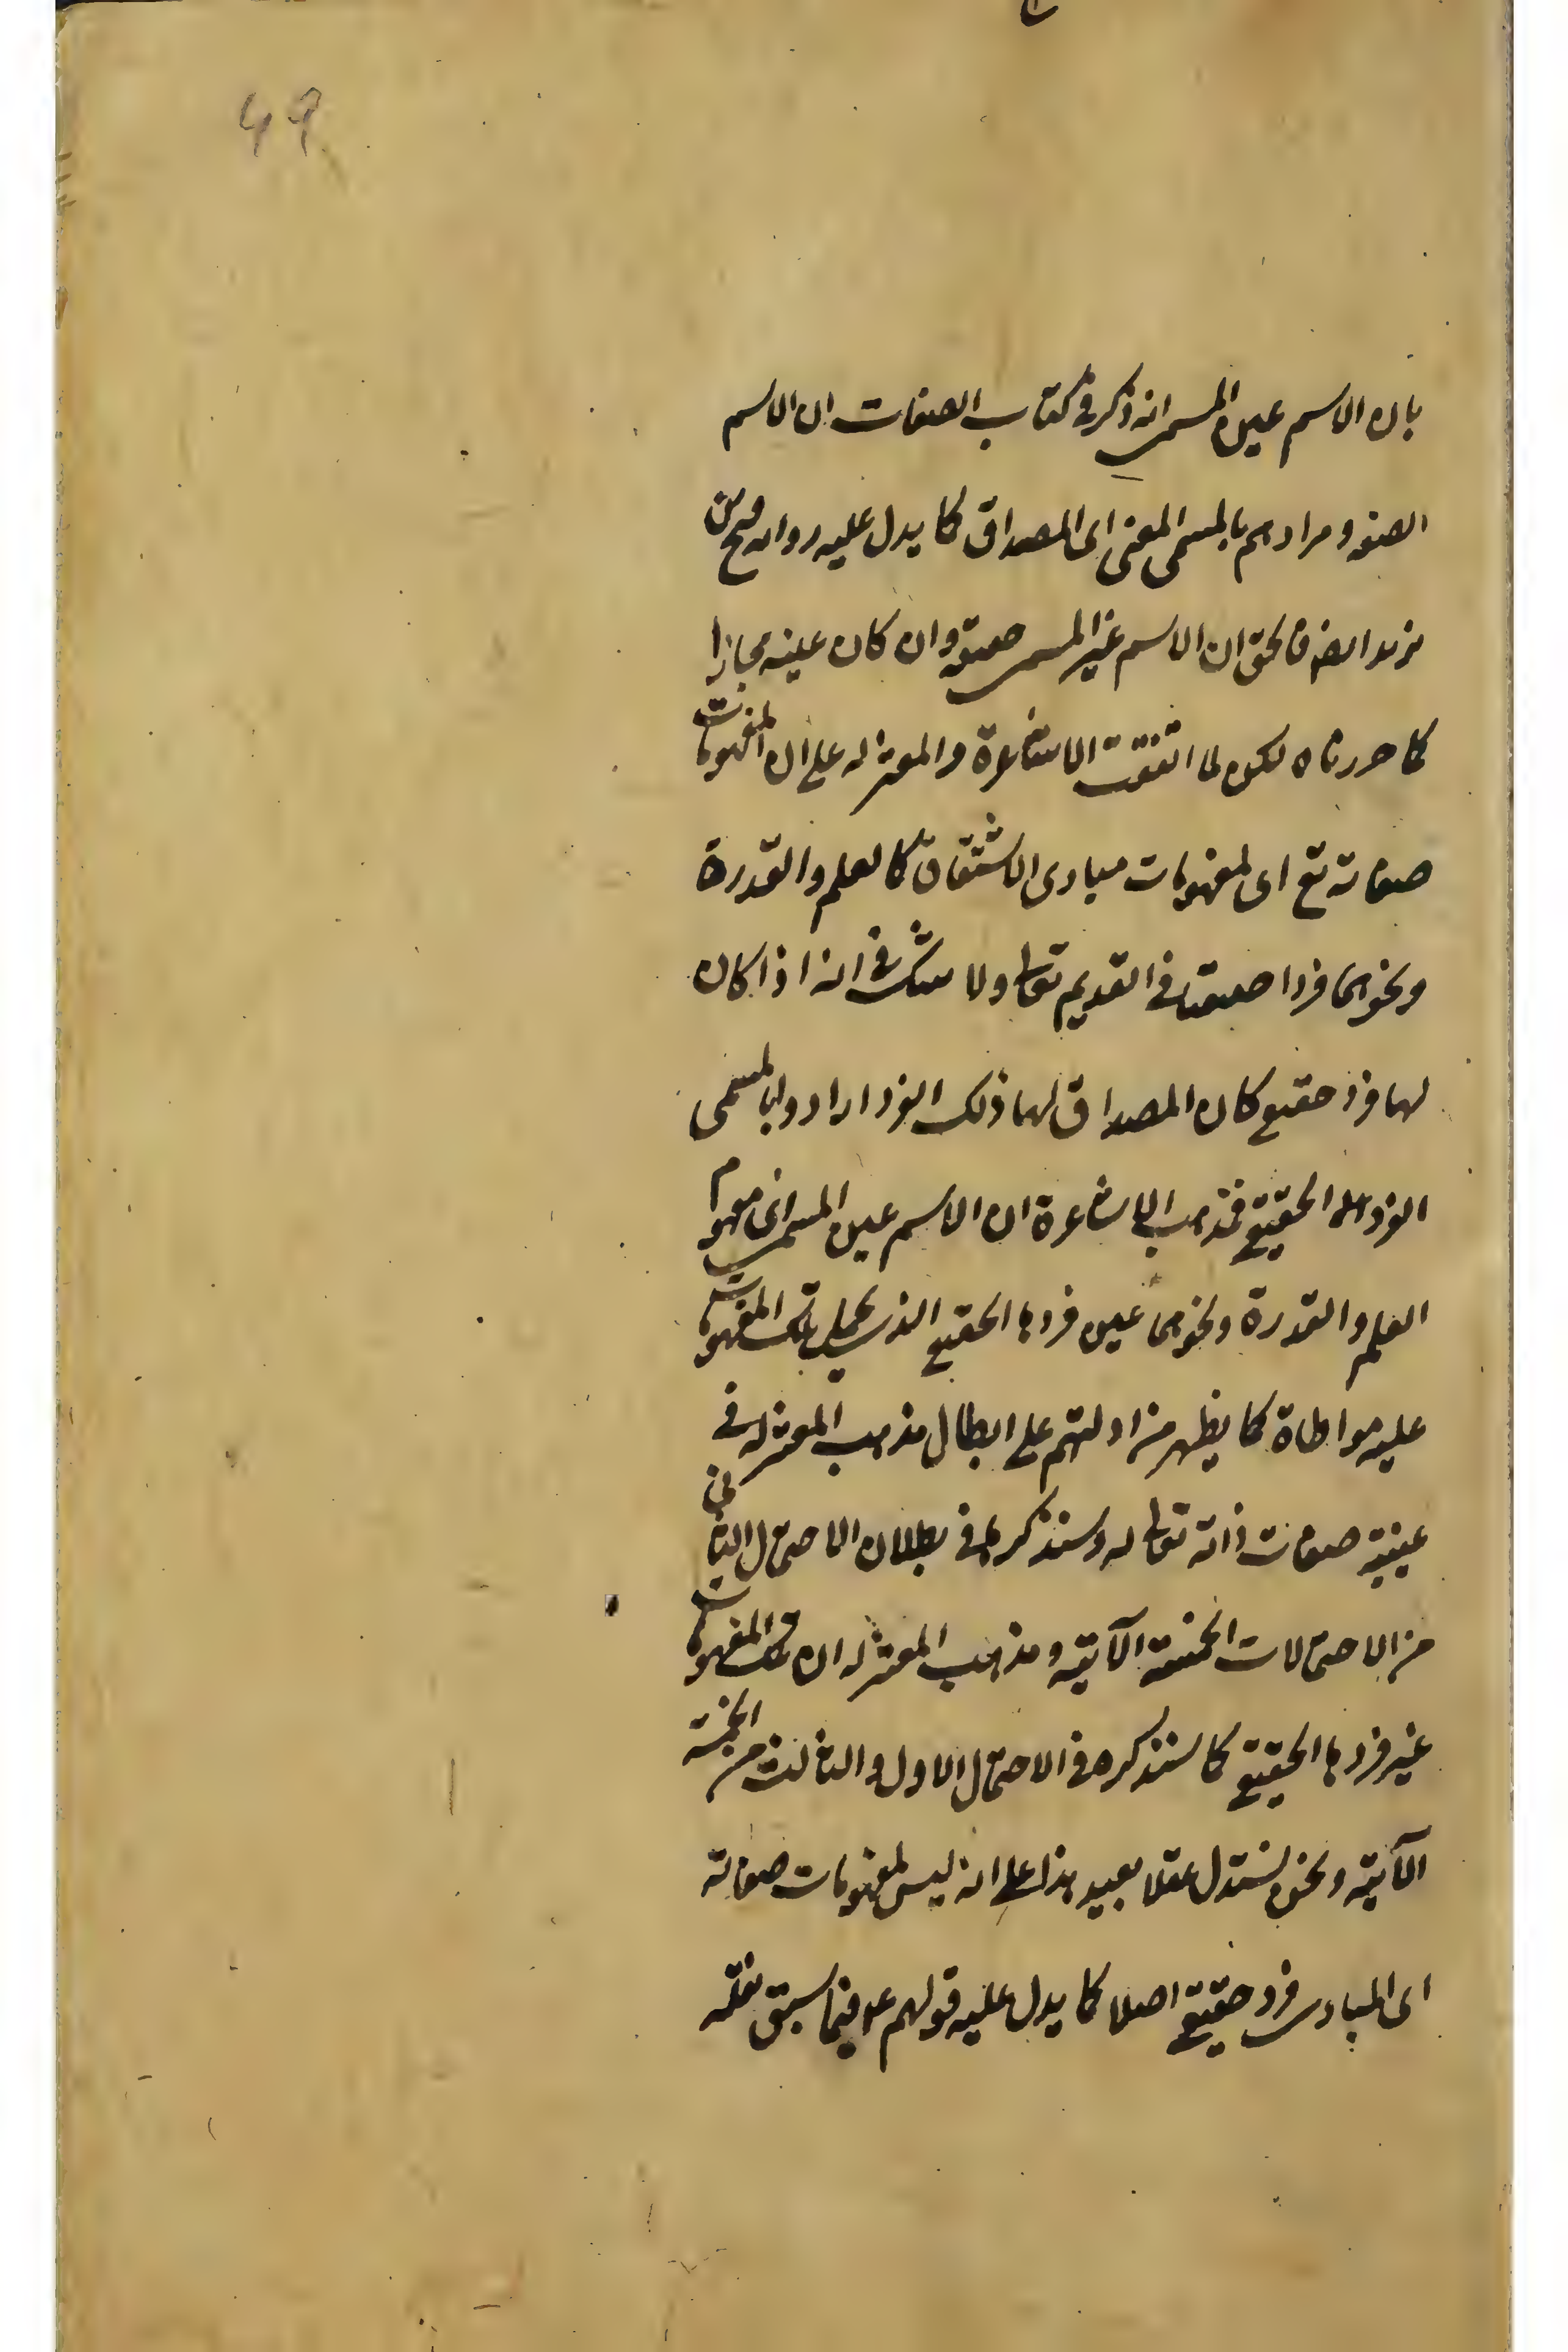 49
بان الاسم عين المسمى انه ذكر في كتاب الصفات ان الاسم
الصفة ومرادهم بالمسمى المعنى اى المصداق كما يدل عليه رواية فتح بن
يزيد ايضا فالحق ان الاسم غير المسمى حقيقة وان كان عينه مجازا
كما حررناه لكن لما اتفقت الاشاعرة والمعتزله على ان المفهومات
صفاته تع اى لمفهومات مبادى الاشتقاق كالعلم والقدرة
ونحوهما فردا حقيقيا في القديم تعالى ولا شك في انه اذا كان
لها فرد حقيقي كان المصداق لها ذلك الفرد ارادوا بالمسمى
الفرد الحقيقي فمذهب الاشاعرة ان الاسم عين المسمى اى مفهوم
العلم والقدرة ونحوهما عين فردها الحقيقي الذى يحمل تلك المفهومات
عليه مواطاة كما يظهر من ادلتهم على ابطال مذهب المعتزله في
عينية صفات ذاته تعالى له وسنذكرها في بطلان الاحتمال الثاني
من الاحتمالات الخمسة الآتية ومذهب المعتزله ان تلك المفهومات
غير فردها الحقيقي كما سنذكره في الاحتمال الاول والثالث من الخمسة
الآتية ونحن نستدل عقلا بعيد هذا على انه ليس لمفهومات صفاته
اى المبادى فرد حقيقي اصلا كما يدل عليه قولهم ع فيما سبق نقله